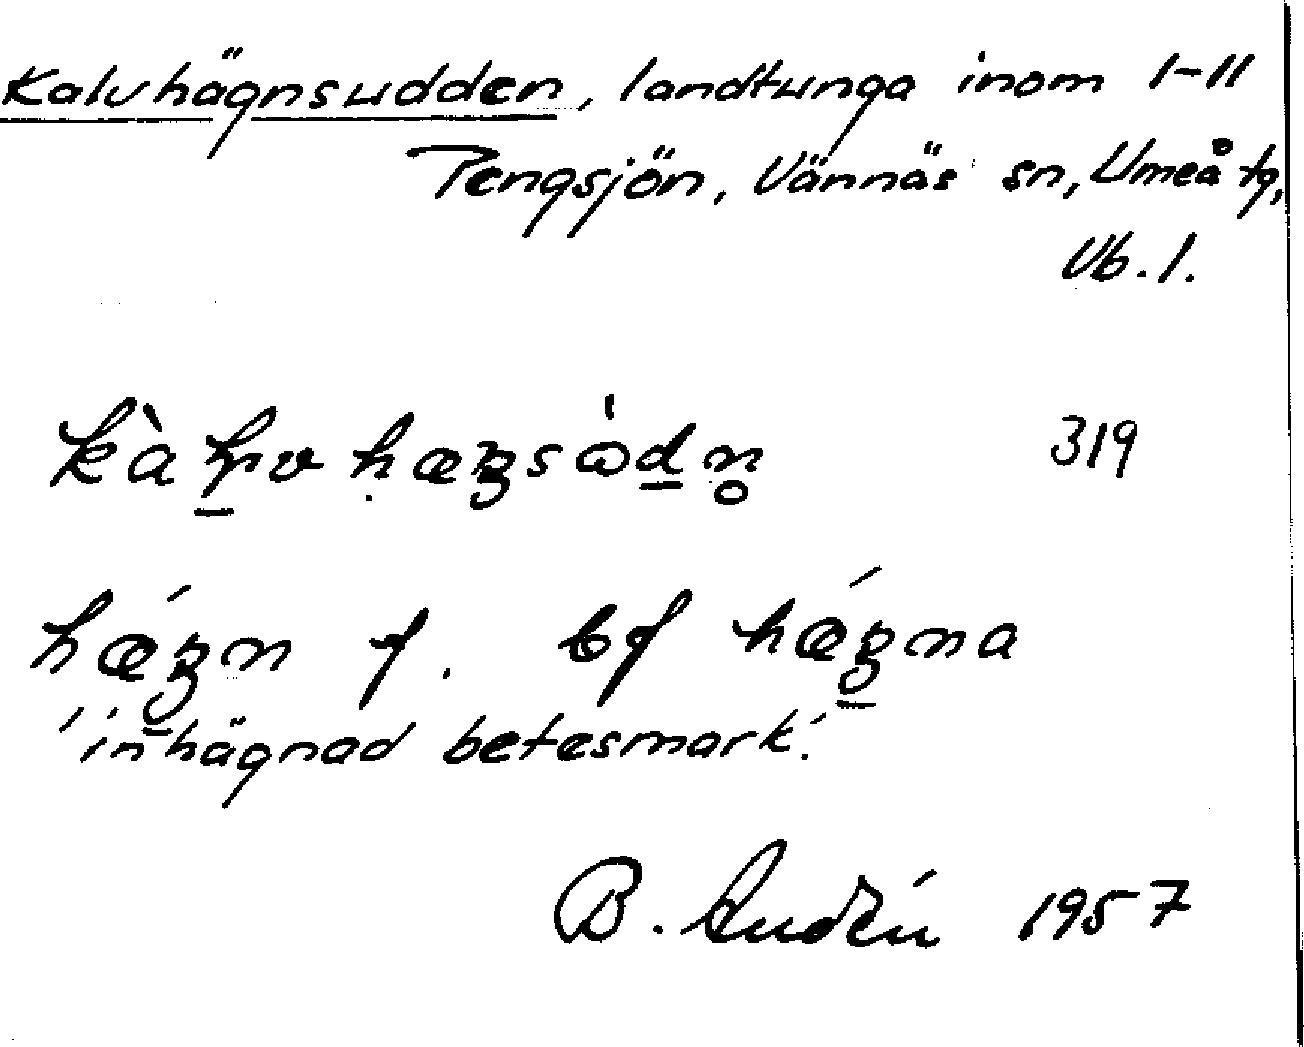 Kalvhägnsudden, landtunga inom I-II
Pengsjön, Vännäs sn, Umeå tg,
Vb. l.
319
hǽgn f. bf hǽgna
'inhägnad betesmark'.
B. Audén 1957